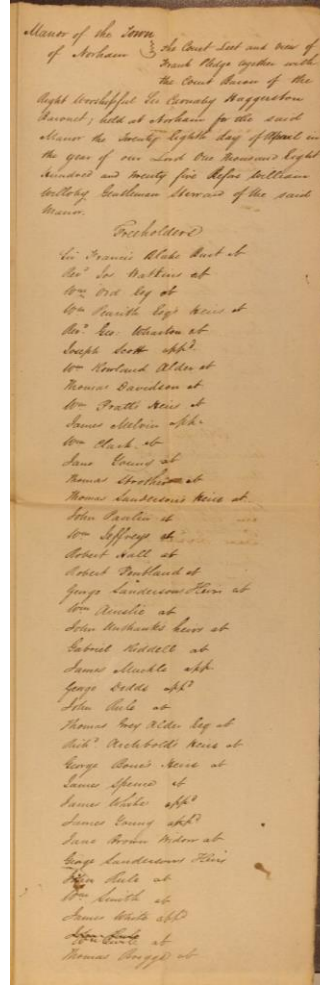 Manor of the Town
of Norham
The Court Leet and view of
Frank Pledge together with
the Court Baron of the
Right Worshipful Sir Carnaby Haggerston
Baronet, held at Norham for the said
Manor the Twenty Eighth day of April in
the year of our Lord One Thousand Eight
Hundred and twenty five Before William
Willoby Gentleman Steward of the said
Manor.
Freeholders
Sir Francis Blake Bart at
Revd. Jos. Watkins at
Wm. Ord Esq at
Wm Penrith Esqr. Heirs at
Revd. Geo. Wharton at
Joseph Scott appd.
Wm Rowland Alder at
Thomas Davidson at
Wm Pratts Heirs at
James Melvin app.
Wm Clark at
Jane Young at
Thomas at
Thomas Sandersons Heirs at
John Paulin at
Wm Jeffreys at
Robert Hall at
Robert Pentland at
George Sandersons Heirs at
Wm Ainslie at
John heirs at
Gabriel Riddell at
James Muckle app.
George Dodds appd
John Rule at
Thomas Grey Alder Esq at
Richd. Archbold's Heirs at
George Heirs at
James Spence at
James White appd
James Young appd
Jane Brown Widow at
George Sandersons Heirs
John Rule at
Wm Smith at
James White appd
John Rule
at
Thomas Briggs at